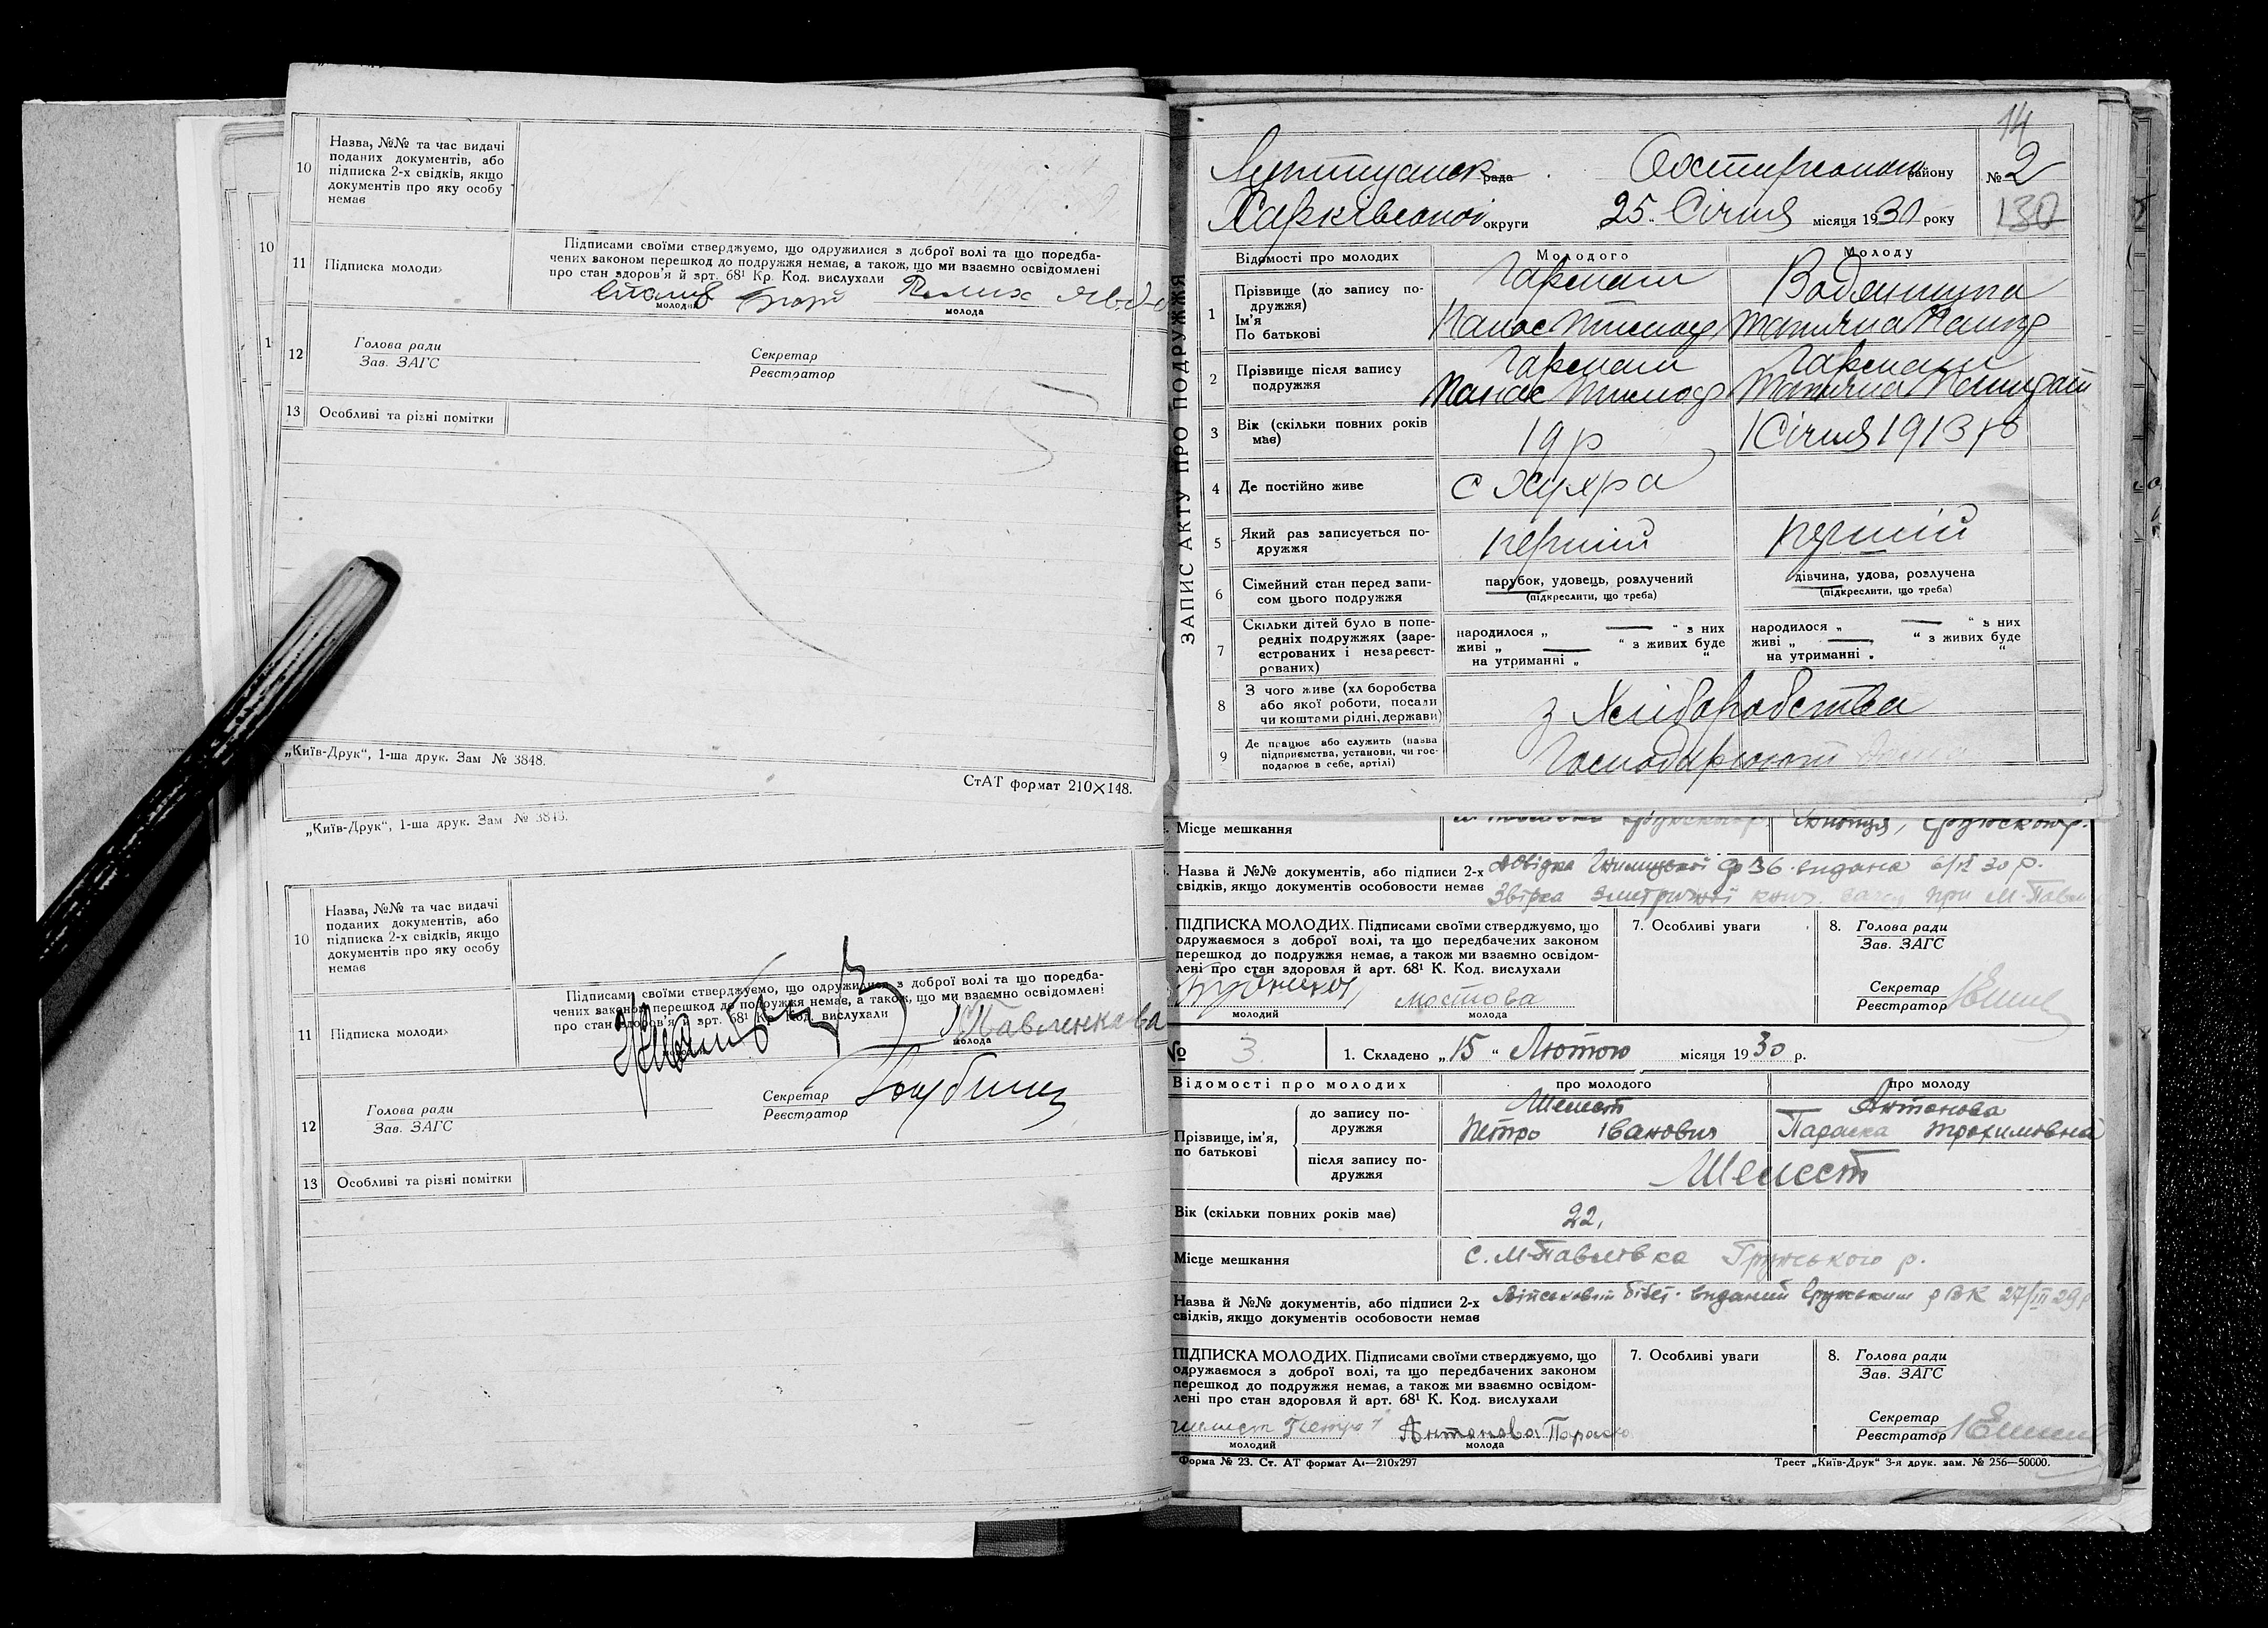 10
Назва, №№ та час видачі
поданих документів, або
підписка 2-х свідків, якщо
документів про яку особу
немає
11
Підписка молодих
Підписами своїми стверджуємо, що одружилися з доброї волі та що передба-
чених законом перешкод до подружжя немає, а також, що ми взаємно освідомлені
про стан здоров'я й арт. 68¹ Кр. Код. вислухали
молодий
молода
12
Голова ради
Зав. ЗАГС
Секретар
Реєстратор
13
Особливі та різні помітки
„Київ-Друк“, 1-ша друк. Зам № 3848.
СтАТ формат 210×148.
„Київ-Друк“, 1-ша друк. Зам № 3848.
10
Назва, №№ та час видачі
поданих документів, або
підписка 2-х свідків, якщо
документів про яку особу
немає
11
Підписка молодих
Підписами своїми стверджуємо, що одружилися з доброї волі та що поредба-
чених законом перешкод до подружжя немає, а також, що ми взаємно освідомлені
про стан здоров'я й арт. 68¹ Кр. Код. вислухали
Павленкова
молода
12
Голова ради
Зав. ЗАГС
Секретар
Реєстратор
13
Особливі та різні помітки
ЗАПИС АКТУ ПРО ПОДРУЖЖЯ
14
рада
району
№ 2
Харківської округи 25 Січня місяця 1930 року
130
Відомості про молодих
Молодого
Молоду
1
Прізвище (до запису по-
дружжя)
Ім'я
По батькові
Гармаш
Водяницька
Панас Тимоф
Тетяна
2
Прізвище після запису
подружжя
Гармаш
Гармаш
Панас Тимоф
3
Вік (скільки повних років
має)
19 р
1 Січня 1913 р
4
Де постійно живе
с Хухра
5
Який раз записується по-
дружжя
перший
перший
6
Сімейний стан перед запи-
сом цього подружжя
парубок, удовець, розлучений
(підкреслити, що треба)
дівчина, удова, розлучена
(підкреслити, що треба)
7
Скільки дітей було в попе-
редніх подружжях (заре-
єстрованих і незареєст-
рованих)
народилося „ — “ з них
живі „ — “ з живих буде
на утриманні „ “
народилося „ — “ з них
живі „ — “ з живих буде
на утриманні „ “
8
З чого живе (хліборобства
або якої роботи, посади
чи коштами рідні, держави)
з Хліборобства
9
Де працює або служить (назва
підприємства, установи, чи гос-
подарює в себе, артілі)
Господарюют
Місце мешкання
Назва й №№ документів, або підписи 2-х
свідків, якщо документів особовости немає
ПІДПИСКА МОЛОДИХ. Підписами своїми стверджуємо, що
одружаємося з доброї волі, та що передбачених законом
перешкод до подружжя немає, а також ми взаємно освідом-
лені про стан здоровля й арт. 68¹ К. Код. вислухали
мостова
молодий
молода
7. Особливі уваги
8. Голова ради
Зав. ЗАГС
Секретар
Реєстратор
№ 3.
1. Складено „15“ Лютого місяця 1930 р.
Відомості про молодих
про молодого
про молоду
Прізвище, ім'я,
по батькові
до запису по-
дружжя
Шелест
Петро Іванович
Антонова
Параска Трохимовна
після запису по-
дружжя
Шелест
Вік (скільки повних років має)
22,
Місце мешкання
с. М-Павлівка Грунського р.
Назва й №№ документів, або підписи 2-х
свідків, якщо документів особовости немає
Військовий білет виданий Грунським РВК 27/III 29р
ПІДПИСКА МОЛОДИХ. Підписами своїми стверджуємо, що
одружаємося з доброї волі, та що передбачених законом
перешкод до подружжя немає, а також ми взаємно освідом-
лені про стан здоровля й арт. 68¹ К. Код. вислухали
шелест Петро
Антонова Параска
молодий
молода
7. Особливі уваги
8. Голова ради
Зав. ЗАГС
Секретар
Реєстратор
Форма № 23. Ст. АТ формат А₄—210х297
Трест „Київ-Друк“ 3-я друк. зам. № 256—50000.